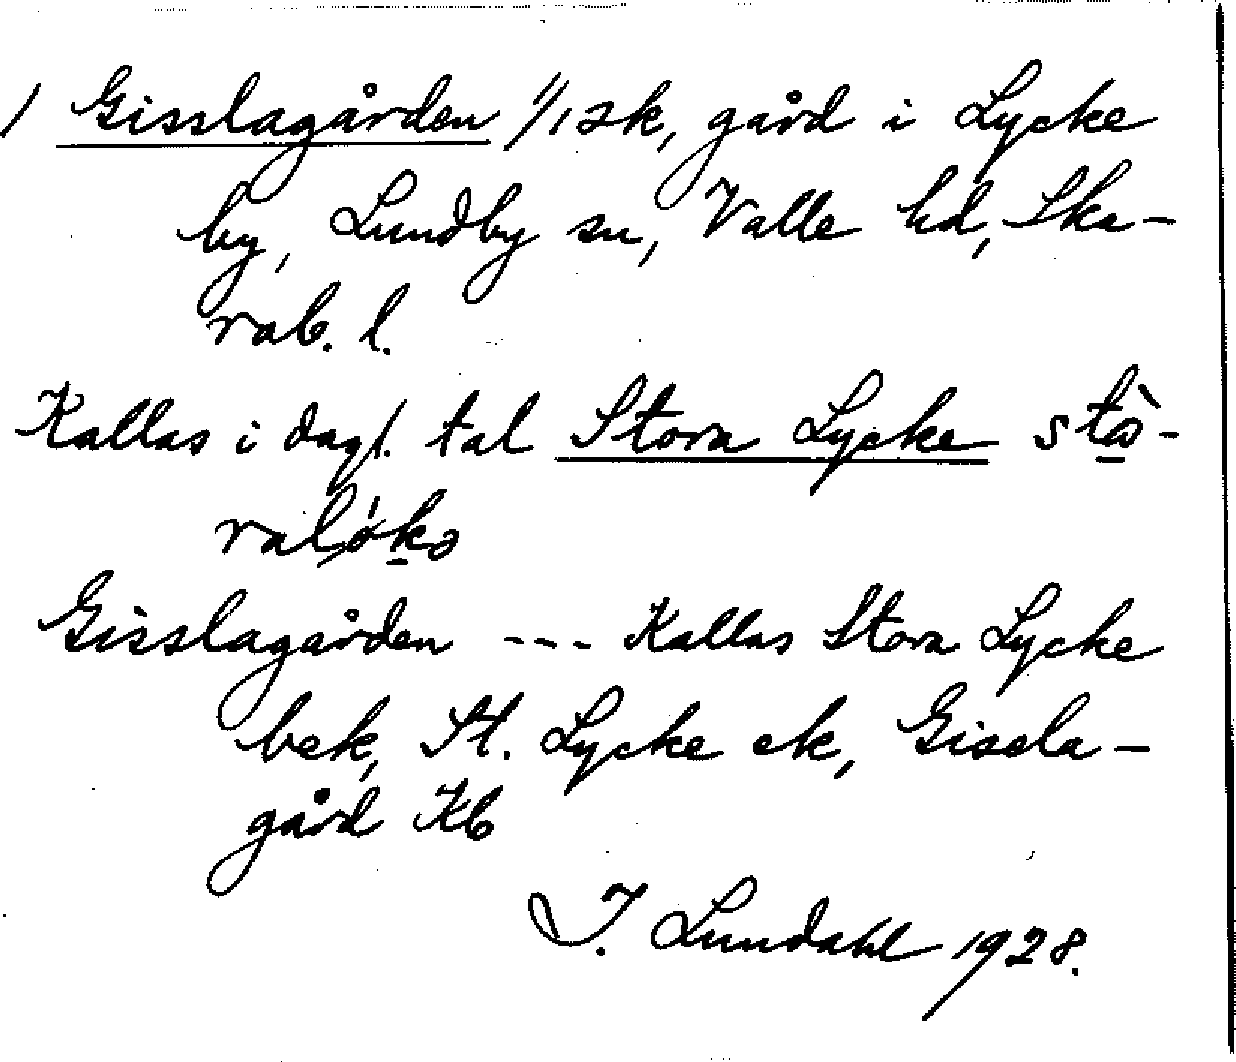 / Gisslagården 1/1 sk, gård i Lycke
by, Lundby sn, Valle hd, Ska-
rab. l.
Kallas i dagl. tal Stora Lycke stò-
raló̱kə
Gisslagården --- Kallas Stora Lycke
bek, St. Lycke ek, Gisela-
gård Kb
I. Lundahl 1928.